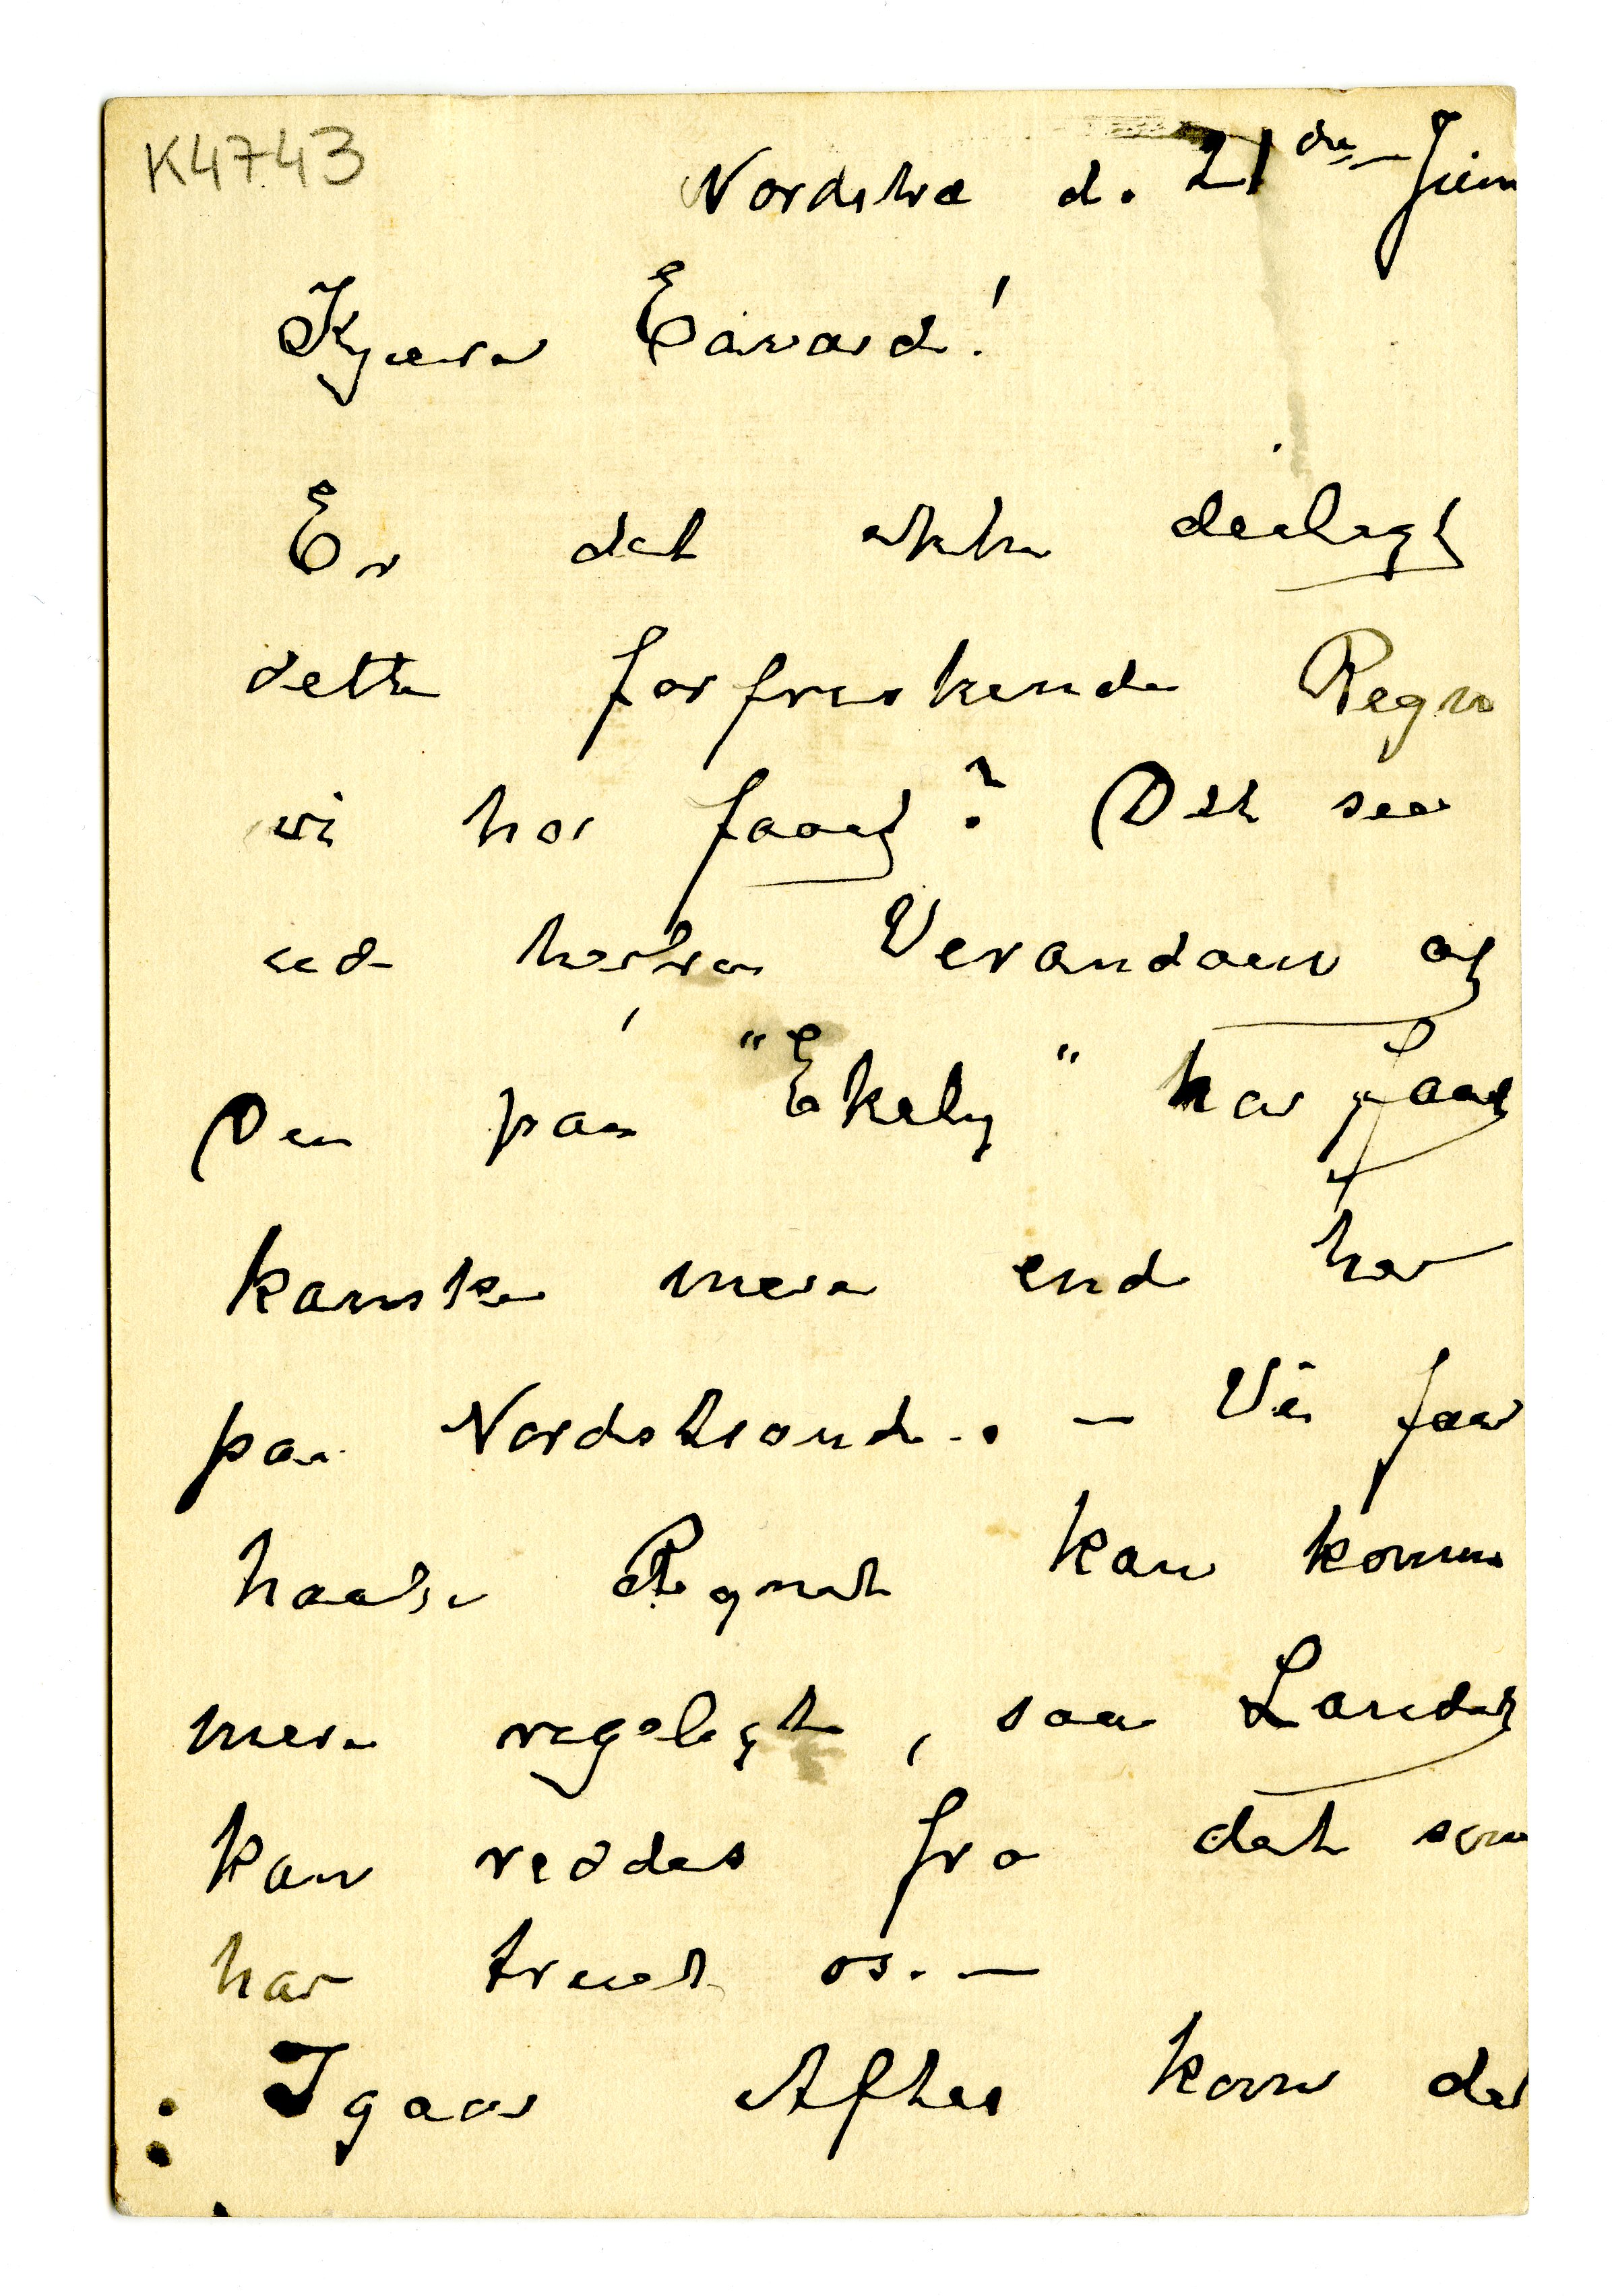 K4743
Nordstra d. 21de Juni
Kjære Edvard!
Er det ikke deiligt
dette forfriskende Regn
vi har faaet? Det saa
ud Verandaen og
Du paa "Ekely" har faaet
kanske mere end her
paa Nordstrand. – Vi faar
haabe Regnet kan komme
mere regelegt, saa Landet
kan reddes fra det som
har truet os. –
Igaar Aftes kom der